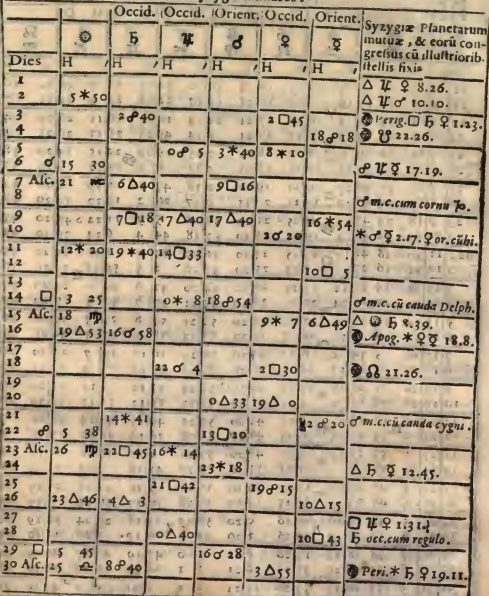 Occid. Occid. Orient. Occid. Orient. Syzygiæ Planetarum
☉ ♄ ♃ ♂ ♀ ☿ mutuæ, & eorū con-
gressus cū illustriorib.
Dies H , H , H , H , H , H , stellis fixis
1 △ ♃ ♀ 8.26.
2 5 ✶ 50 △ ♃ ♂ 10.10.
3 2 ☍ 40 2 □ 45 Perig. □ ♄ ♀ 1.23.
4 18 ☍ 18 ☋ 22.26.
5 0 ☍ 5 3 ✶ 40 8 ✶ 10
6 ☌ 15 30 ☍ ♃ ☿ 17.19.
7 Asc. 21 6 △ 40 9 □ 16
8 ♂ m.c. cum cornu ♑.
9 7 □ 18 17 △ 40 17 △ 40 16 ✶ 54
10 2 ☌ 20 ✶ ♂ ☿ 2.17. ♀ or. cū
11 12 ✶ 20 19 ✶ 40 14 □ 33
12 10 □ 5
13
14 □ 3 25 0 ✶ 8 18 ☍ 54 ♂ m.c. cū cauda Delph.
15 Asc. 18 ♍ 9 ✶ 7 6 △ 49 △ ☉ ♄ 8.39.
16 19 △ 53 16 ☌ 58 Apog. ✶ ♀ ☿ 18.8.
17
18 22 ☌ 4 2 □ 30 ☊ 21.26.
19
20 0 △ 33 19 △ 0
21 14 ✶ 41 ♂ m.c. cū cauda cygni.
22 ☍ 5 38 13 □ 20 22 ☍ 20
23 Asc. 26 ♍ 22 □ 45 16 ✶ 14
24 23 ✶ 18 △ ♄ ☿ 12.45.
25 21 □ 42 19 ☍ 15
26 23 △ 46 4 △ 3 10 △ 15
27 □ ♃ ♀ 1.31.
28 0 △ 40 20 □ 43 ♄ occ. cum regulo.
29 □ 5 45 16 ☌ 28
30 Asc. 25 ♎ 8 ☍ 40 3 △ 55 Peri. ✶ ♄ ♀ 19.11.